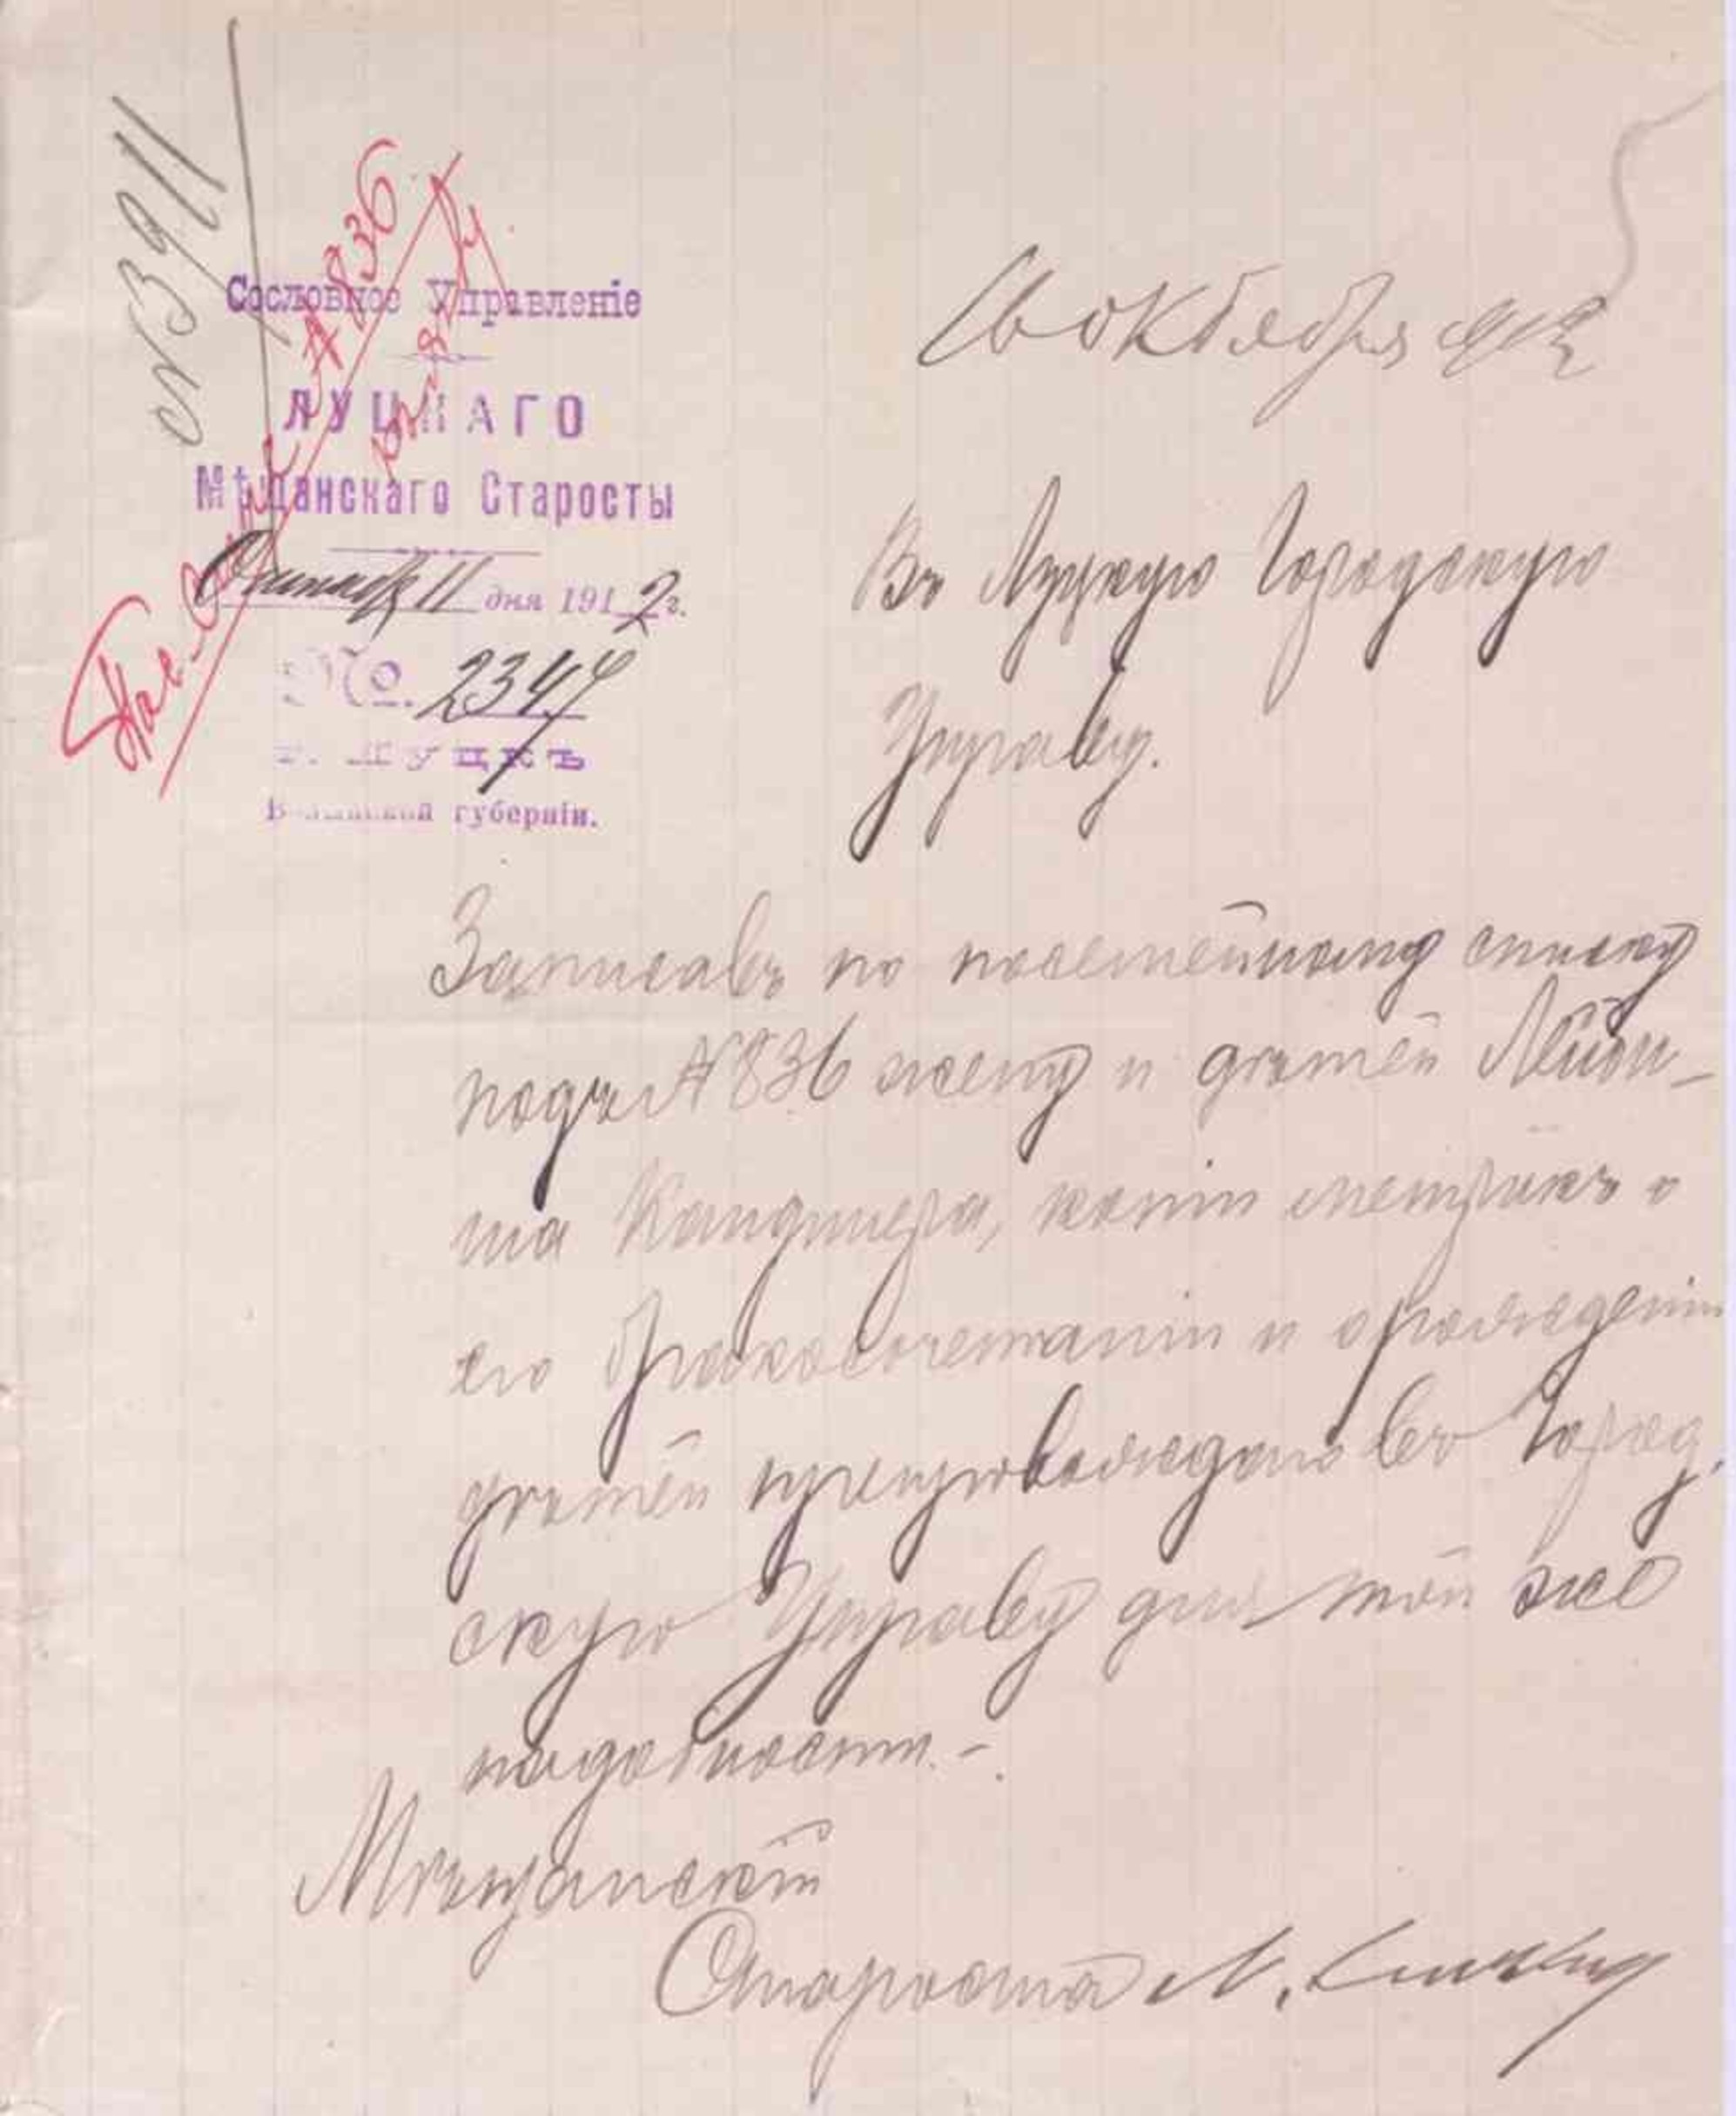 № 3911
Сословное Управленіе
ЛУЦКАГО
Мѣщанскаго Старосты
11 дня 1912 г.
№. 2344
г. Луцкъ
Волынской губерніи.
№ 836
октября 912
Въ Луцкую Городскую
Управу.
Записавъ по посемейному списку
подъ № 836 жену и дѣтей Лейби-
ша Кандшера, копіи метрикъ о
его бракосочетаніи и о рожденіи
дѣтей препровождаю въ Город.
скую Управу для той же
надобности. -
Мѣщанскій
Староста